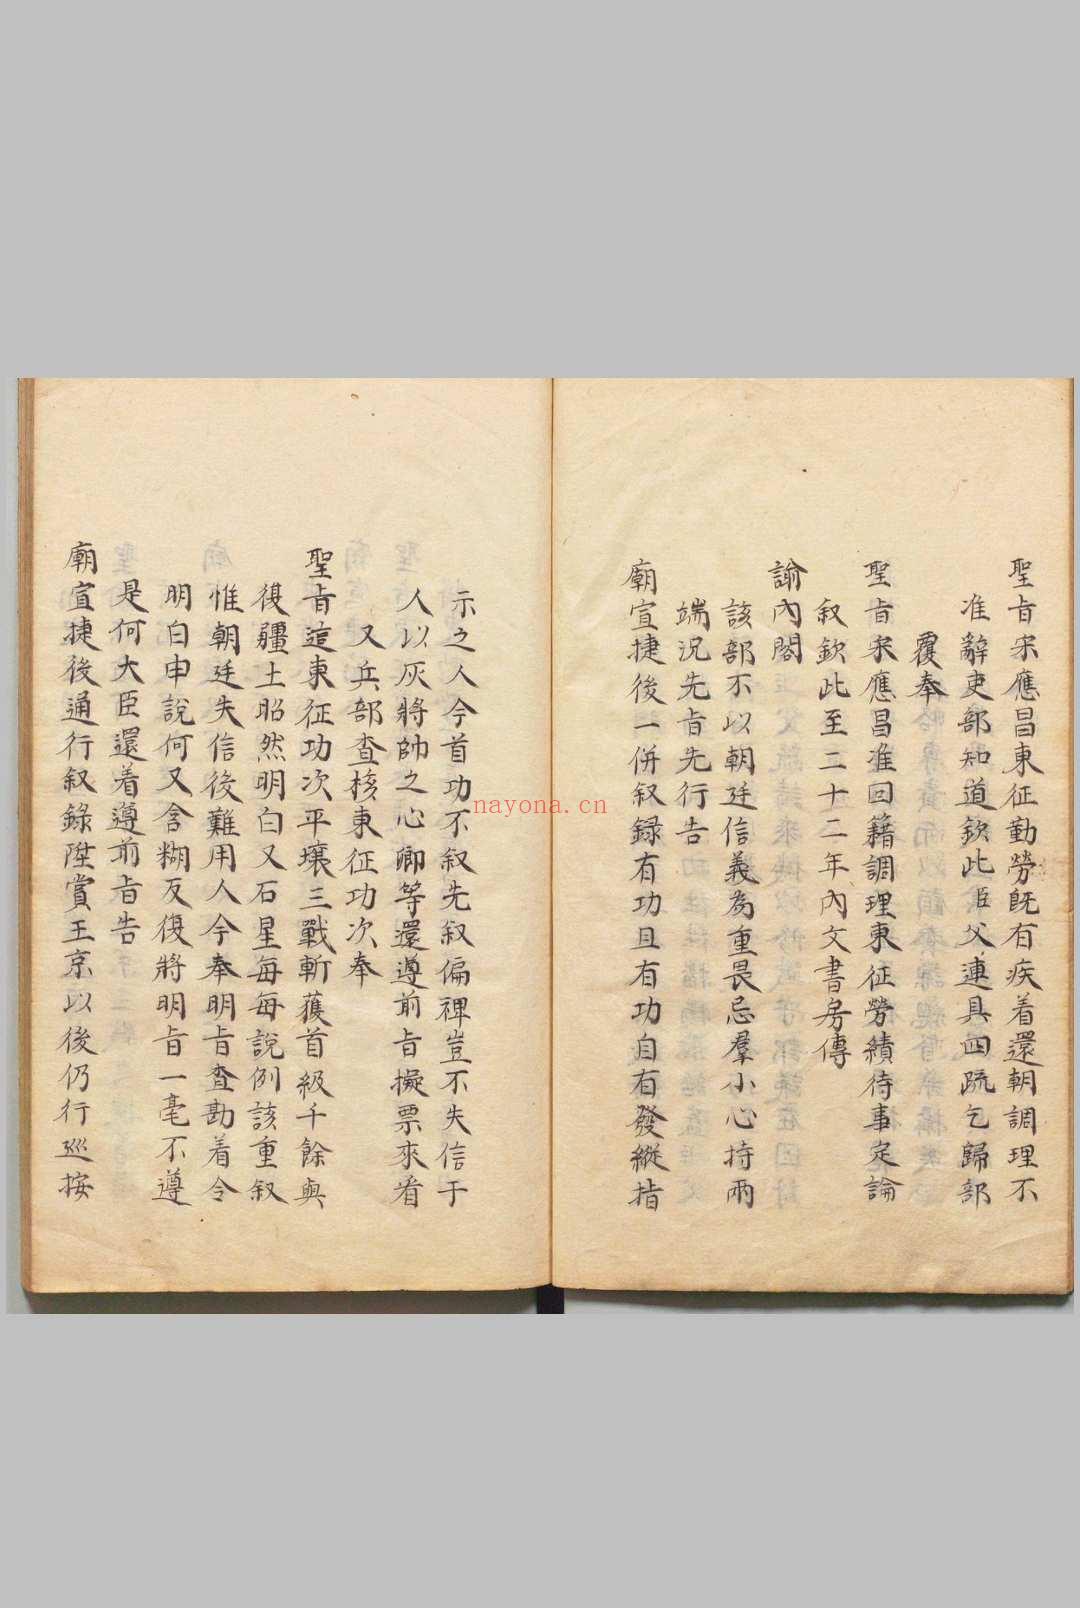 聖旨宋應昌東征勤勞既有疾着還朝調理不
准辭吏部知道欽此距父連具四疏乞歸部
覆奉
聖旨宋應昌准回籍調理東征勞績待事定論
叙欽此至二十二年內文書房傳
諭內閣
該部不以朝廷信義為重畏忌羣小心持兩
端況先旨先行告
廟宣捷後一併叙録有功且有功自有發縱指
示之人今首功不叙先叙偏裨豈不失信于
人以灰將帥之心卿等還遵前旨擬票來看
又兵部查核東征功次奉
聖旨這東征功次平壤三戰斬獲首級千餘與
復疆土昭然明白又石星每每說例該重叙
惟朝廷失信後難用人今奉明旨查勘着令
明白申說何又含糊反復將明旨一毫不遵
是何大臣還着遵前旨告
廟宣捷後通行叙錄陞賞王京以後仍行巡按
nayona.cn